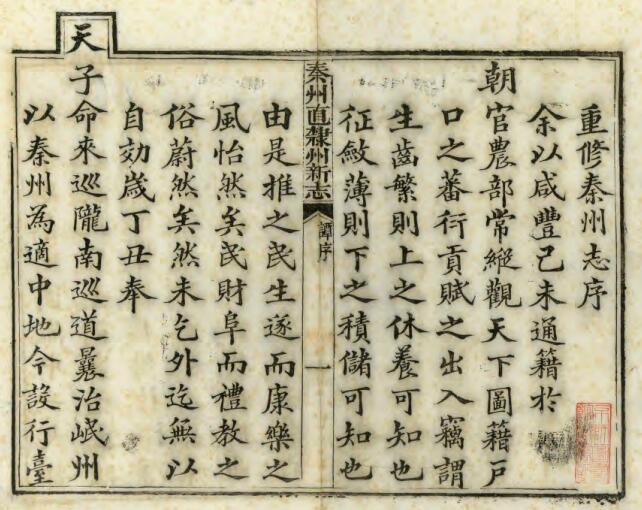 重修秦州志序
余以咸豐己未通籍於
朝官農部常縱觀天下圖籍戶
口之蕃衍貢賦之出入竊謂
生齒繁則上之休養可知也
征斂薄則下之積儲可知也
秦州直隸州新志
譚序
一
由是推之民生遂而康樂之
風怡然矣民財阜而禮教之
俗蔚然矣然未乞外迄無以
自効歲丁丑奉
天
子命來巡隴南巡道曩治岷州
以秦州為適中地今設行臺